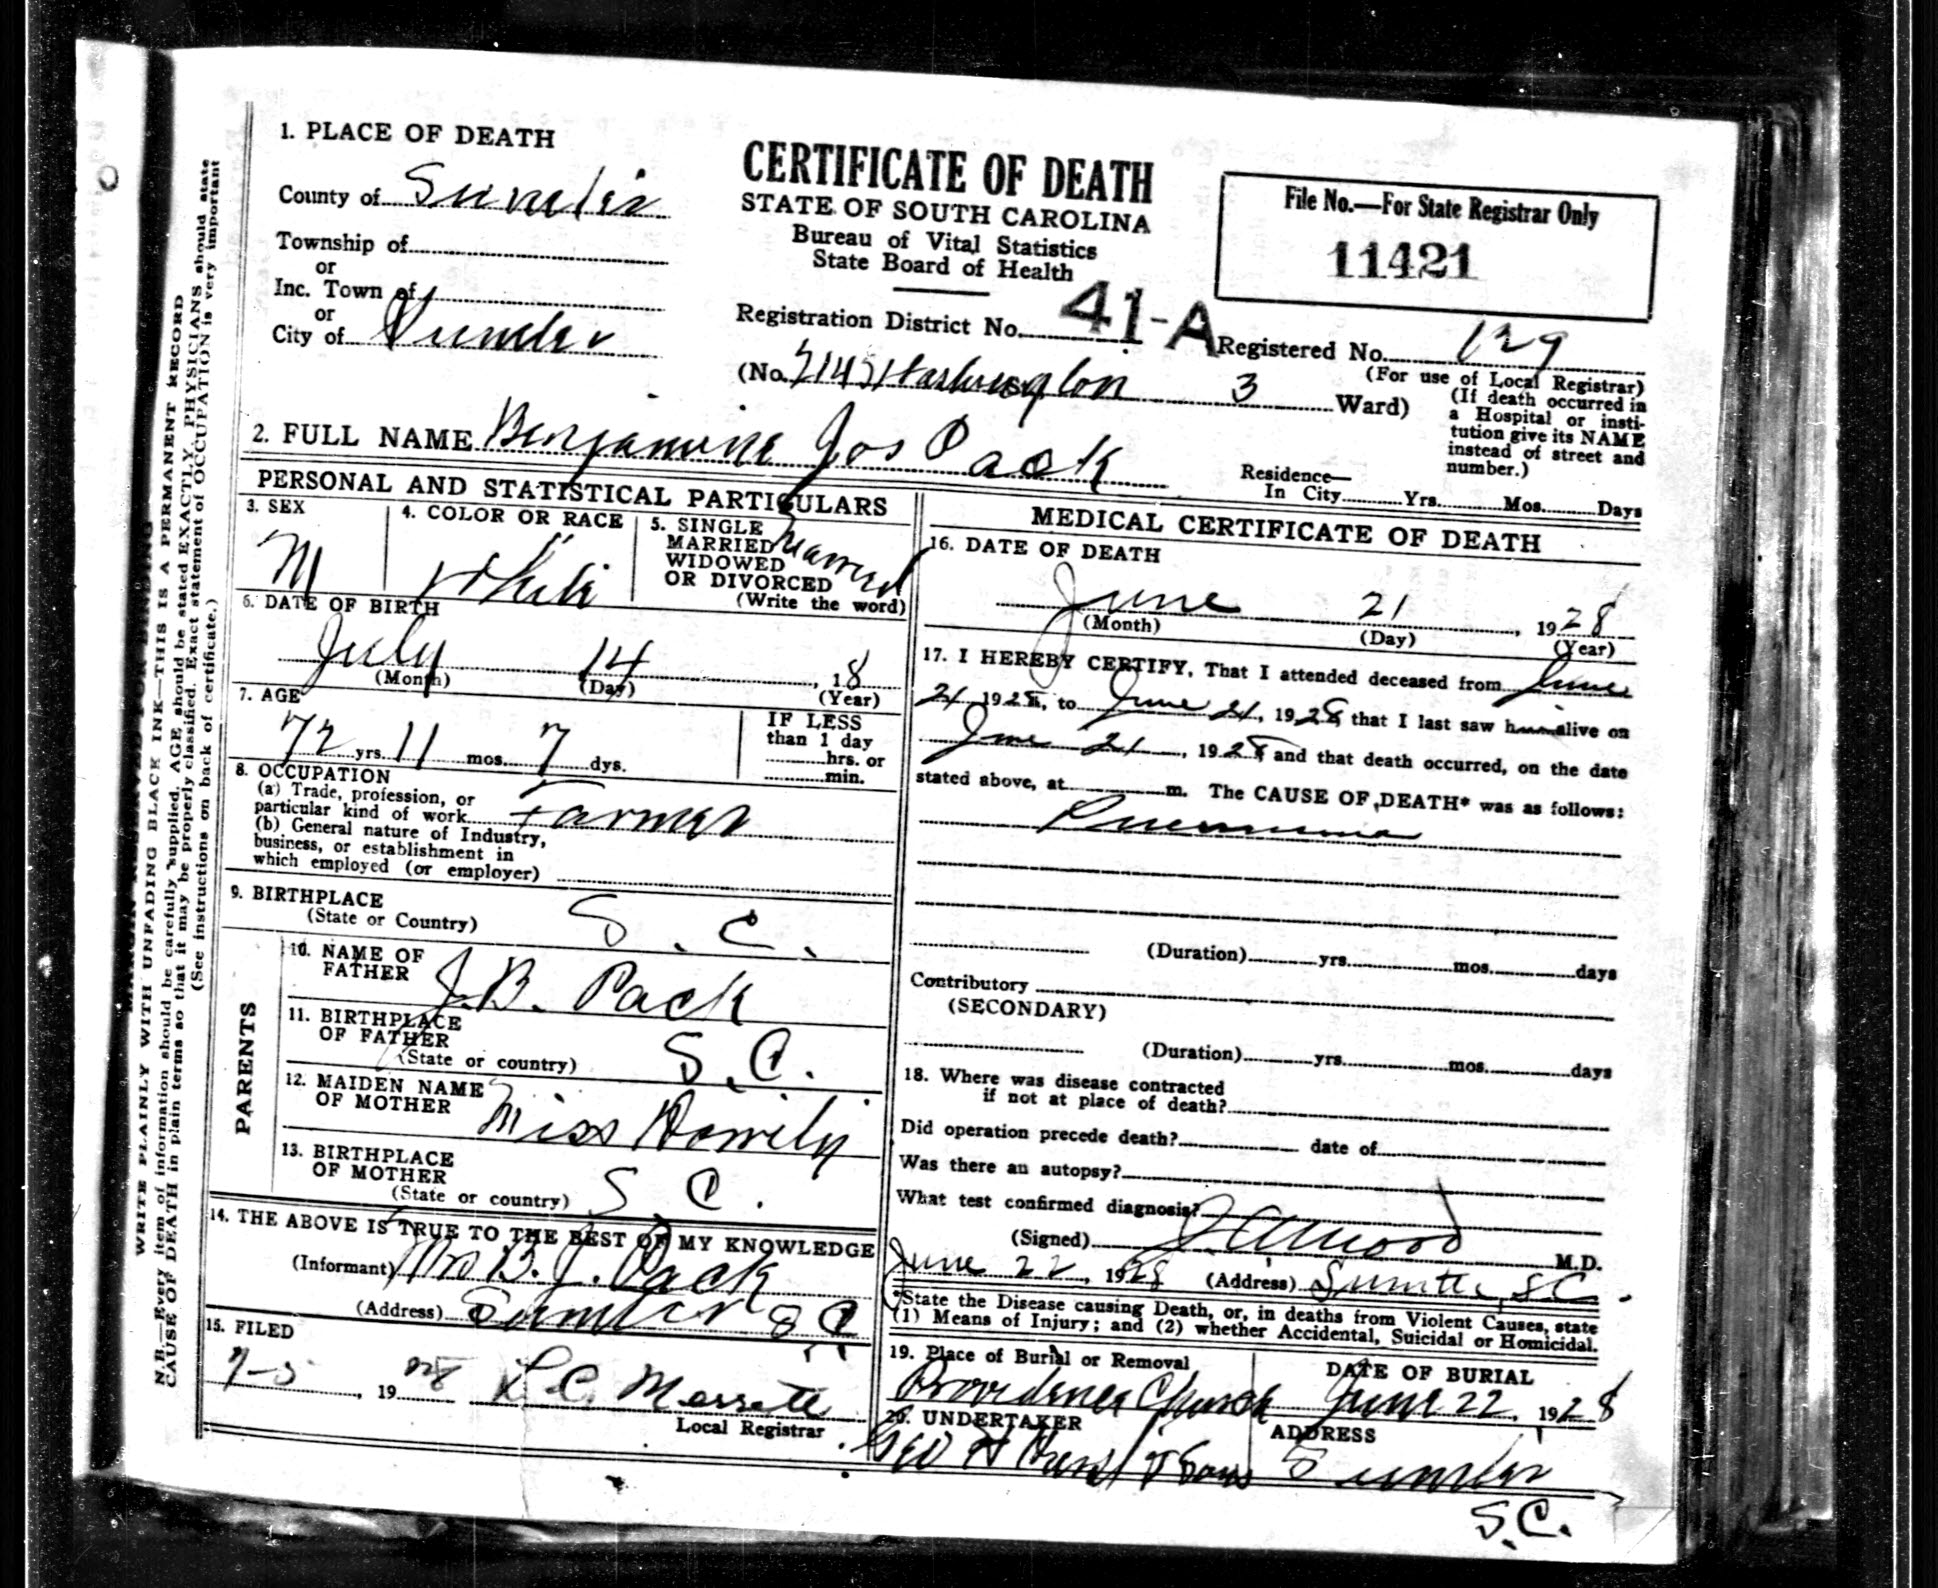 1. PLACE OF DEATH
County of Sumter
Township of
or
Inc. Town of
or
City of Sumter
CERTIFICATE OF DEATH
STATE OF SOUTH CAROLINA
Bureau of Vital Statistics
State Board of Health
File No.—For State Registrar Only
11421
Registration District No. 41-A
Registered No. 129
(For use of Local Registrar)
(No. Washington 3 Ward)
(If death occurred in
a Hospital or insti-
tution give its NAME
instead of street and
number.)
2. FULL NAME Benjamine Jos Pack
Residence—
In City Yrs. Mos. Days
PERSONAL AND STATISTICAL PARTICULARS
3. SEX
M
4. COLOR OR RACE
White
5. SINGLE
MARRIED
WIDOWED
OR DIVORCED
(Write the word)
Married
6. DATE OF BIRTH
July 14, 18
(Month) (Day) (Year)
7. AGE
72 yrs. 11 mos. 7 dys.
IF LESS
than 1 day
hrs. or
min.
8. OCCUPATION
(a) Trade, profession, or
particular kind of work Farmer
(b) General nature of Industry,
business, or establishment in
which employed (or employer)
9. BIRTHPLACE
(State or Country) S. C.
PARENTS
10. NAME OF
FATHER J. B. Pack
11. BIRTHPLACE
OF FATHER
(State or country) S. C.
12. MAIDEN NAME
OF MOTHER Miss
13. BIRTHPLACE
OF MOTHER
(State or country) S. C.
14. THE ABOVE IS TRUE TO THE BEST OF MY KNOWLEDGE
(Informant) Mrs B. J. Pack
(Address) Sumter S C
15. FILED
7-5, 1928 L. C.
Local Registrar
MEDICAL CERTIFICATE OF DEATH
16. DATE OF DEATH
June 21, 1928
(Month) (Day) (Year)
17. I HEREBY CERTIFY, That I attended deceased from June
21 1928, to June 21, 1928, that I last saw him alive on
June 21, 1928 and that death occurred, on the date
stated above, at m. The CAUSE OF DEATH* was as follows:
Pneumonia
(Duration) yrs. mos. days
Contributory
(SECONDARY)
(Duration) yrs. mos. days
18. Where was disease contracted
if not at place of death?
Did operation precede death? date of
Was there an autopsy?
What test confirmed diagnosis?
(Signed) M.D.
June 22, 1928 (Address) Sumter, S.C.
*State the Disease causing Death, or, in deaths from Violent Causes, state
(1) Means of Injury; and (2) whether Accidental, Suicidal or Homicidal.
19. Place of Burial or Removal
Providence Church
DATE OF BURIAL
June 22, 1928
20. UNDERTAKER
Geo H Hurst & Sons
ADDRESS
Sumter
S.C.
WRITE PLAINLY WITH UNFADING BLACK INK—THIS IS A PERMANENT RECORD
N. B.—Every item of information should be carefully supplied. AGE should be stated EXACTLY. PHYSICIANS should state
CAUSE OF DEATH in plain terms so that it may be properly classified. Exact statement of OCCUPATION is very important
(See instructions on back of certificate.)